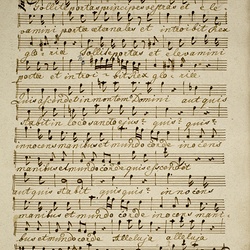 Tollite portas principes vestras et ele
vamini portae aeternales et introibit Rex
gloriae Tollite portas et elevamini
portae et introibit Rex gloriae
Quis ascendet in montem Domini aut quis
stabit in loco sancto ejus quis? quis?
innocens manibus et mundo corde inocens
manibus et mundo corde quis ascendit
aut quis stabit quis quis? in nocens
manibus et mundo corde inocens mani-
bus et mundo corde Alleluja alleluja